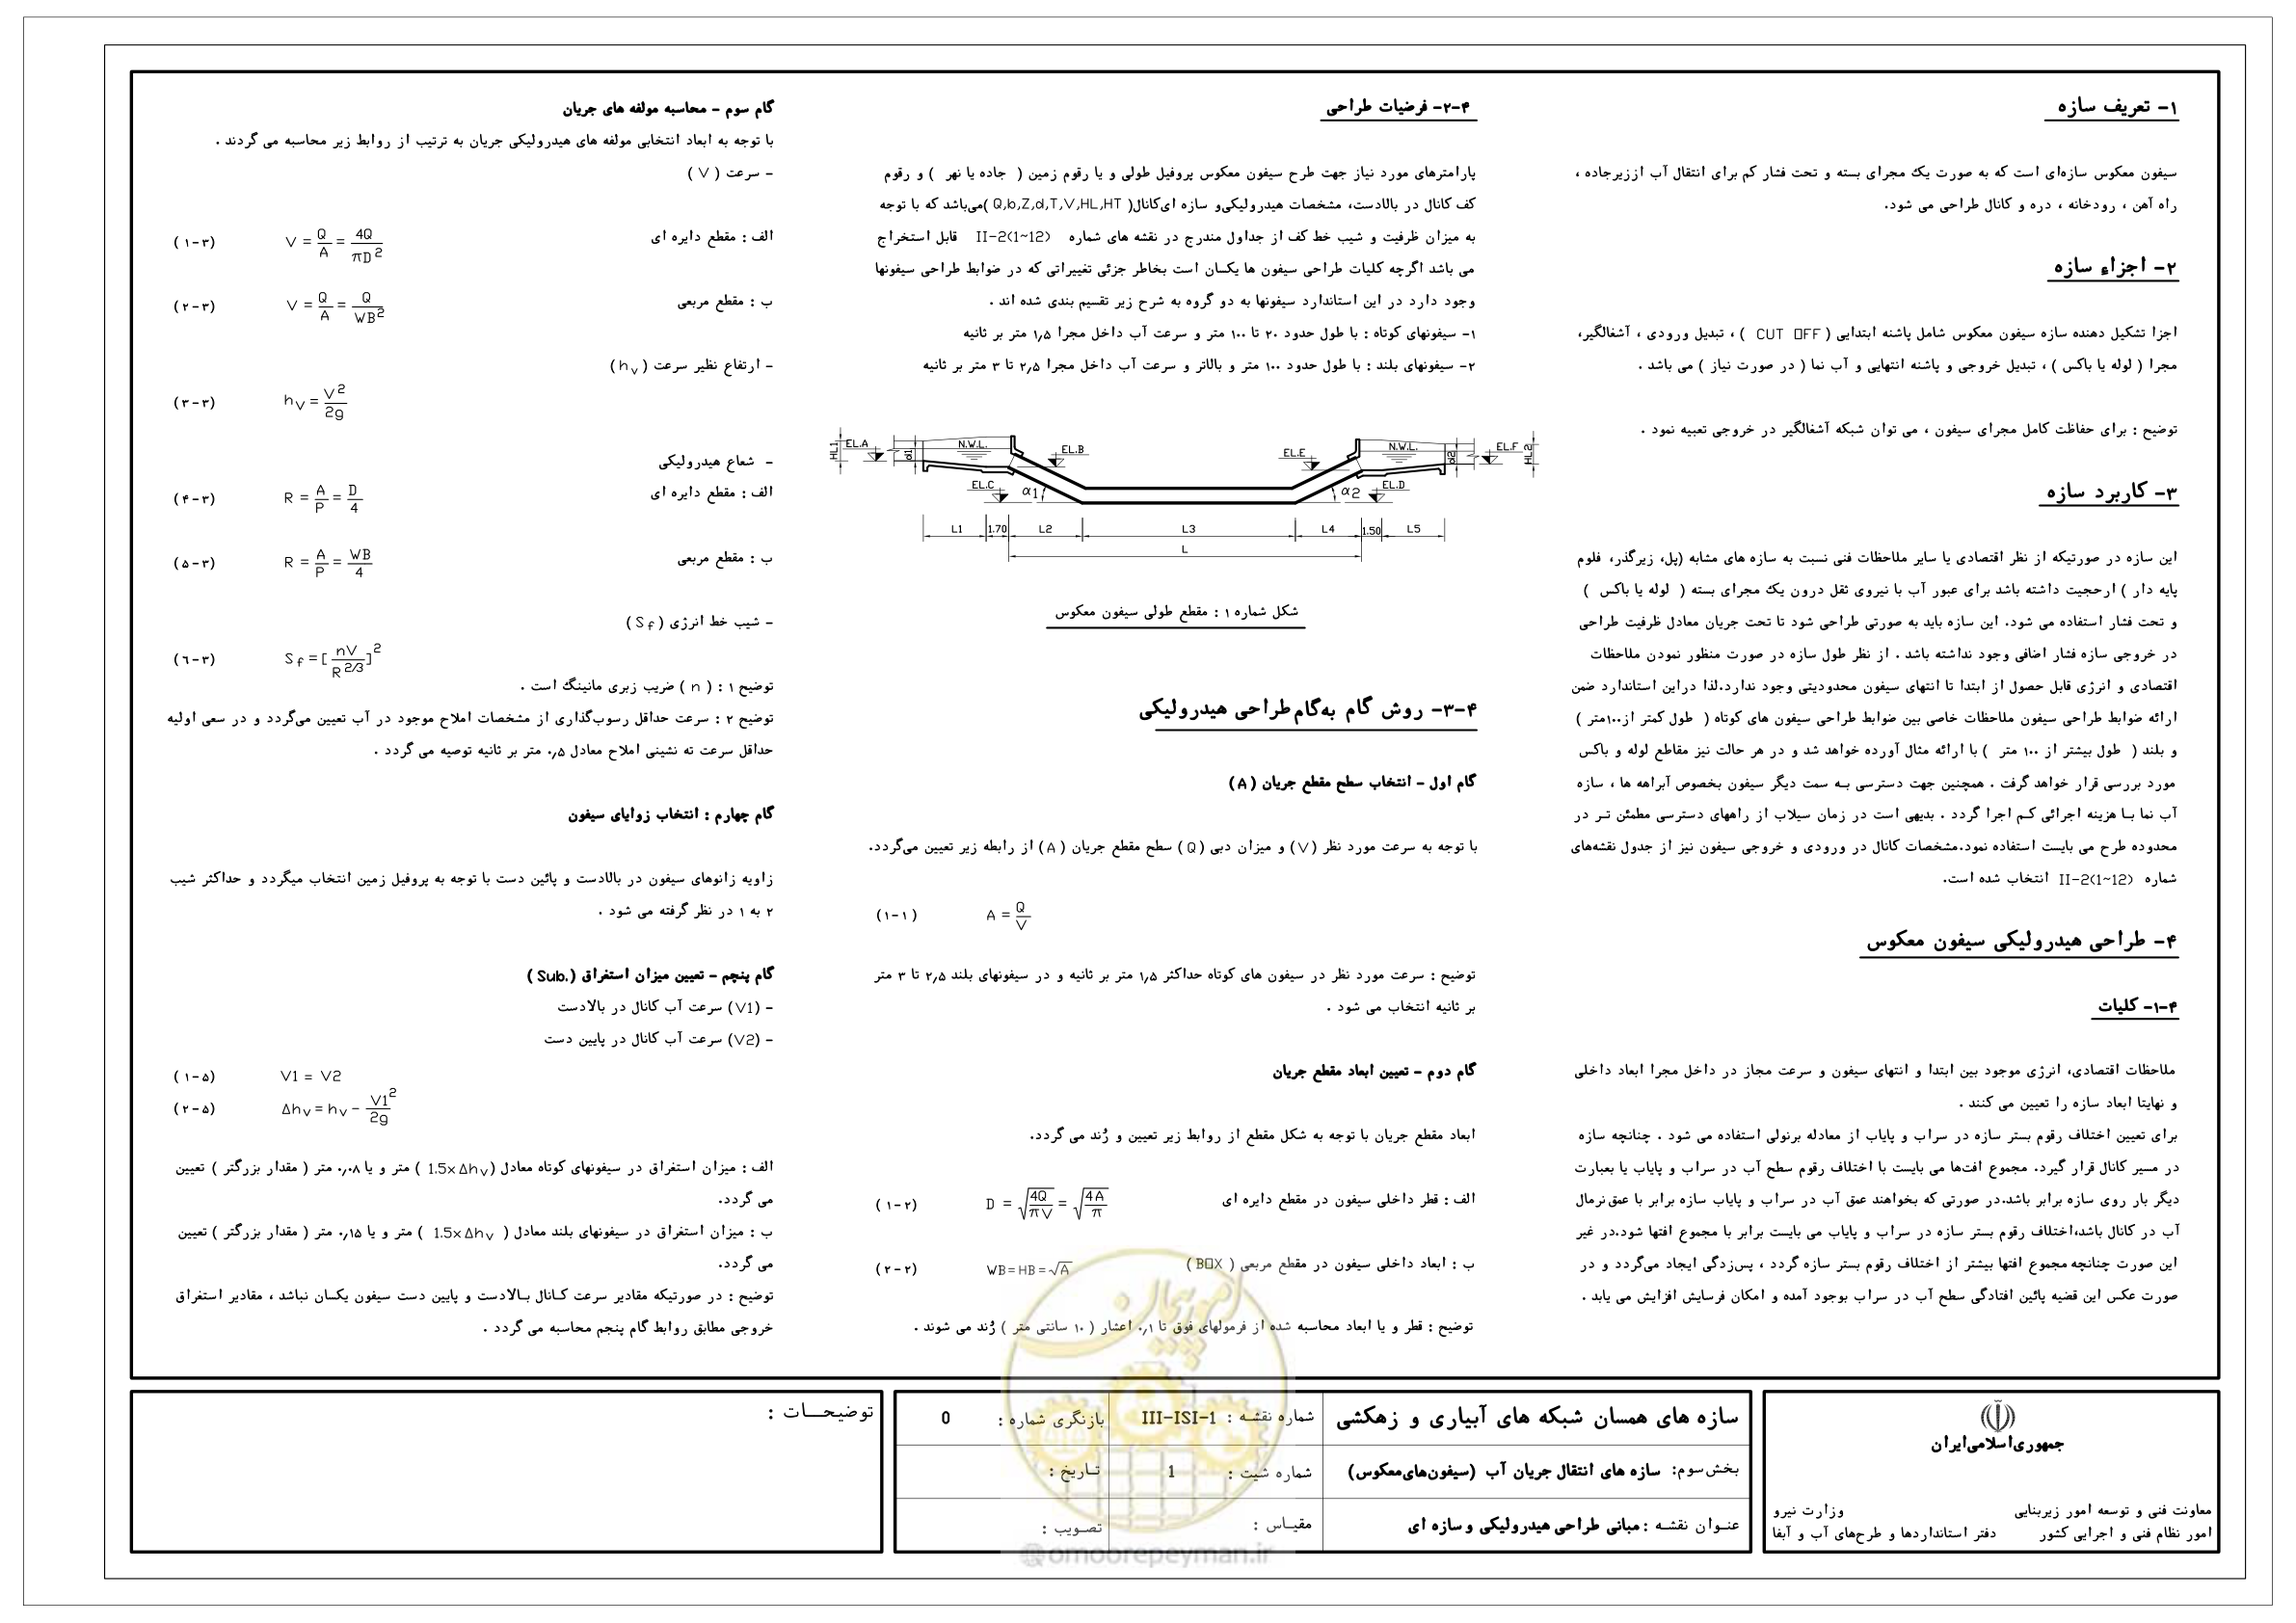 ۱- تعریف سازه
سیفون معکوس سازه‌ای است که به صورت یک مجرای بسته و تحت فشار کم برای انتقال آب اززیرجاده ،
راه آهن ، رودخانه ، دره و کانال طراحی می شود.
۲- اجزاء سازه
اجزا تشکیل دهنده سازه سیفون معکوس شامل پاشنه ابتدایی ( CUT OFF ) ، تبدیل ورودی ، آشغالگیر،
مجرا ( لوله یا باکس ) ، تبدیل خروجی و پاشنه انتهایی و آب نما ( در صورت نیاز ) می باشد .
توضیح : برای حفاظت کامل مجرای سیفون ، می توان شبکه آشغالگیر در خروجی تعبیه نمود .
۳- کاربرد سازه
این سازه در صورتیکه از نظر اقتصادی یا سایر ملاحظات فنی نسبت به سازه های مشابه (پل، زیرگذر، فلوم
پایه دار ) ارجحیت داشته باشد برای عبور آب با نیروی ثقل درون یک مجرای بسته ( لوله یا باکس )
و تحت فشار استفاده می شود. این سازه باید به صورتی طراحی شود تا تحت جریان معادل ظرفیت طراحی
در خروجی سازه فشار اضافی وجود نداشته باشد . از نظر طول سازه در صورت منظور نمودن ملاحظات
اقتصادی و انرژی قابل حصول از ابتدا تا انتهای سیفون محدودیتی وجود ندارد.لذا دراین استاندارد ضمن
ارائه ضوابط طراحی سیفون ملاحظات خاصی بین ضوابط طراحی سیفون های کوتاه ( طول کمتر از۱۰۰متر )
و بلند ( طول بیشتر از ۱۰۰ متر ) با ارائه مثال آورده خواهد شد و در هر حالت نیز مقاطع لوله و باکس
مورد بررسی قرار خواهد گرفت . همچنین جهت دسترسی بـه سمت دیگر سیفون بخصوص آبراهه ها ، سازه
آب نما بـا هزینه اجرائی کـم اجرا گردد . بدیهی است در زمان سیلاب از راههای دسترسی مطمئن تـر در
محدوده طرح می بایست استفاده نمود.مشخصات کانال در ورودی و خروجی سیفون نیز از جدول نقشه‌های
شماره II-2(1~12) انتخاب شده است.
۴- طراحی هیدرولیکی سیفون معکوس
۴-۱- کلیات
ملاحظات اقتصادی، انرژی موجود بین ابتدا و انتهای سیفون و سرعت مجاز در داخل مجرا ابعاد داخلی
و نهایتا ابعاد سازه را تعیین می کنند .
برای تعیین اختلاف رقوم بستر سازه در سراب و پایاب از معادله برنولی استفاده می شود . چنانچه سازه
در مسیر کانال قرار گیرد. مجموع افت‌ها می بایست با اختلاف رقوم سطح آب در سراب و پایاب یا بعبارت
دیگر بار روی سازه برابر باشد.در صورتی که بخواهند عمق آب در سراب و پایاب سازه برابر با عمق‌نرمال
آب در کانال باشد،اختلاف رقوم بستر سازه در سراب و پایاب می بایست برابر با مجموع افتها شود،در غیر
این صورت چنانچه مجموع افتها بیشتر از اختلاف رقوم بستر سازه گردد ، پس‌زدگی ایجاد می‌گردد و در
صورت عکس این قضیه پائین افتادگی سطح آب در سراب بوجود آمده و امکان فرسایش افزایش می یابد .
۴-۲- فرضیات طراحی
پارامترهای مورد نیاز جهت طرح سیفون معکوس پروفیل طولی و یا رقوم زمین ( جاده یا نهر ) و رقوم
کف کانال در بالادست، مشخصات هیدرولیکی‌و سازه ای‌کانال( Q,b,Z,d,T,V,HL,HT )می‌باشد که با توجه
به میزان ظرفیت و شیب خط کف از جداول مندرج در نقشه های شماره II-2(1~12) قابل استخراج
می باشد اگرچه کلیات طراحی سیفون ها یکسان است بخاطر جزئی تغییراتی که در ضوابط طراحی سیفونها
وجود دارد در این استاندارد سیفونها به دو گروه به شرح زیر تقسیم بندی شده اند .
۱- سیفونهای کوتاه : با طول حدود ۲۰ تا ۱۰۰ متر و سرعت آب داخل مجرا ۱٫۵ متر بر ثانیه
۲- سیفونهای بلند : با طول حدود ۱۰۰ متر و بالاتر و سرعت آب داخل مجرا ۲٫۵ تا ۳ متر بر ثانیه
HL1 EL.A d1 N.W.L. EL.B EL.E N.W.L. d2 EL.F HL2
EL.C α1 α2 EL.D
L1 1.70 L2 L3 L4 1.50 L5
L
شکل شماره ۱ : مقطع طولی سیفون معکوس
۴-۳- روش گام به‌گام‌طراحی هیدرولیکی
گام اول - انتخاب سطح مقطع جریان ( A )
با توجه به سرعت مورد نظر ( V ) و میزان دبی ( Q ) سطح مقطع جریان ( A ) از رابطه زیر تعیین می‌گردد.
A = Q/V (۱-۱)
توضیح : سرعت مورد نظر در سیفون های کوتاه حداکثر ۱٫۵ متر بر ثانیه و در سیفونهای بلند ۲٫۵ تا ۳ متر
بر ثانیه انتخاب می شود .
گام دوم - تعیین ابعاد مقطع جریان
ابعاد مقطع جریان با توجه به شکل مقطع از روابط زیر تعیین و رُند می گردد.
الف : قطر داخلی سیفون در مقطع دایره ای D = √(4Q/πV) = √(4A/π) (۱-۲)
ب : ابعاد داخلی سیفون در مقطع مربعی ( BOX ) WB=HB=√A (۲-۲)
توضیح : قطر و یا ابعاد محاسبه شده از فرمولهای فوق تا ۰٫۱ اعشار ( ۱۰ سانتی متر ) رُند می شوند .
گام سوم - محاسبه مولفه های جریان
با توجه به ابعاد انتخابی مولفه های هیدرولیکی جریان به ترتیب از روابط زیر محاسبه می گردند .
- سرعت ( V )
الف : مقطع دایره ای V = Q/A = 4Q/πD² (۱-۳)
ب : مقطع مربعی V = Q/A = Q/WB² (۲-۳)
- ارتفاع نظیر سرعت ( hv )
hv = V²/2g (۳-۳)
- شعاع هیدرولیکی
الف : مقطع دایره ای R = A/P = D/4 (۴-۳)
ب : مقطع مربعی R = A/P = WB/4 (۵-۳)
- شیب خط انرژی ( Sf )
Sf = [nV/R^2/3]² (۶-۳)
توضیح ۱ : ( n ) ضریب زبری مانینگ است .
توضیح ۲ : سرعت حداقل رسوب‌گذاری از مشخصات املاح موجود در آب تعیین می‌گردد و در سعی اولیه
حداقل سرعت ته نشینی املاح معادل ۰٫۵ متر بر ثانیه توصیه می گردد .
گام چهارم : انتخاب زوایای سیفون
زاویه زانوهای سیفون در بالادست و پائین دست با توجه به پروفیل زمین انتخاب میگردد و حداکثر شیب
۲ به ۱ در نظر گرفته می شود .
گام پنجم - تعیین میزان استغراق ( Sub.)
- (V1) سرعت آب کانال در بالادست
- (V2) سرعت آب کانال در پایین دست
V1 = V2 (۱-۵)
Δhv = hv - V1²/2g (۲-۵)
الف : میزان استغراق در سیفونهای کوتاه معادل ( 1.5xΔhv ) متر و یا ۰٫۰۸ متر ( مقدار بزرگتر ) تعیین
می گردد.
ب : میزان استغراق در سیفونهای بلند معادل ( 1.5xΔhv ) متر و یا ۰٫۱۵ متر ( مقدار بزرگتر ) تعیین
می گردد.
توضیح : در صورتیکه مقادیر سرعت کـانال بـالادست و پایین دست سیفون یکسان نباشد ، مقادیر استغراق
خروجی مطابق روابط گام پنجم محاسبه می گردد .
جمهوری‌اسلامی‌ایران
معاونت فنی و توسعه امور زیربنایی وزارت نیرو
امور نظام فنی و اجرایی کشور دفتر استانداردها و طرح‌های آب و آبفا
سازه های همسان شبکه های آبیاری و زهکشی شماره نقشـه : III-ISI-1 بازنگری شماره : 0
بخش‌سوم: سازه های انتقال جریان آب (سیفون‌های‌معکوس) شماره شیت : 1 تـاریخ :
عنـوان نقشـه : مبانی طراحی هیدرولیکی و سازه ای مقیـاس : تصـویب :
توضیحـــات :
امور پیمان
@omoorepeyman.ir